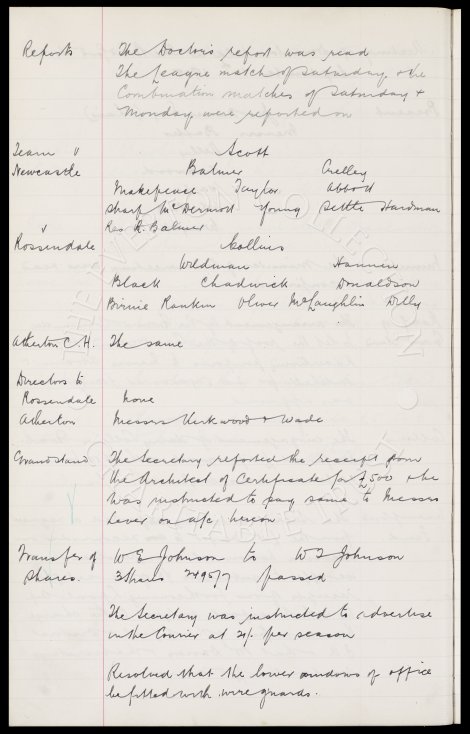 Reports The Doctor's report was read
The League match of Saturday, & the
Combination matches of Saturday &
Monday were reported on
Team v Scott
Newcastle Balmer Crelley
Makepeace Taylor Abbott
Sharp McDermott Young Settle Hardman
Res R. Balmer
v
Rossendale Collins
Wildman Hannon
Black Chadwick Donaldson
Birnie Rankin Oliver McLaughlin Dilly
Atherton C.H. The same
Directors to
Rossendale None
Atherton Messrs Kirkwood & Wade
Grandstand The Secretary reported the receipt from
the Architect of Certificate for £500 & he
was instructed to pay same to Messrs
on a/c hereon
Transfer of W E Johnson to W J Johnson
Shares. 3 Shares 2495/7 passed
The Secretary was instructed to advertise
in the Courier at per season
Resolved that the lower windows of office
be fitted with wire guards.